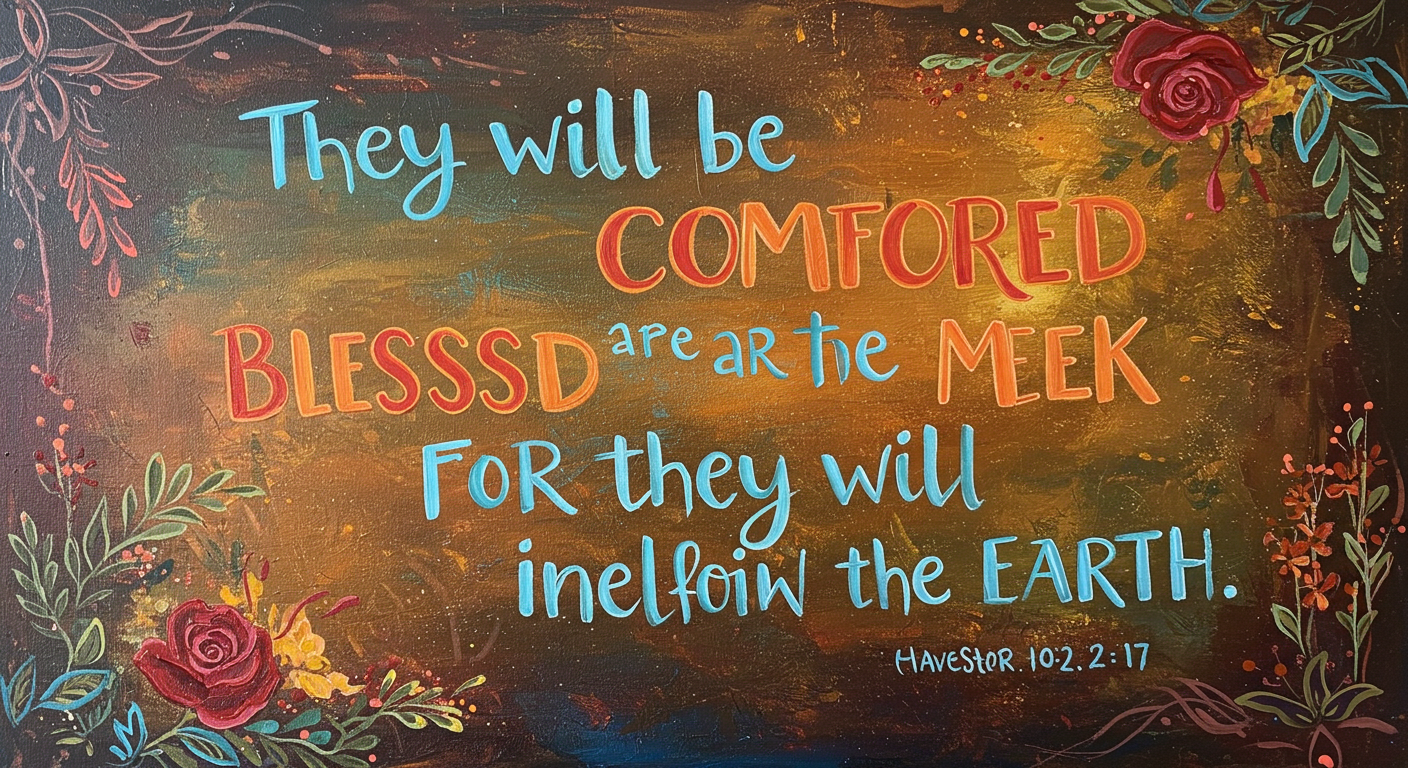 They will be
COMFORED
BLESSSD are aR the MEEK
FOR they will
inelfoiw the EARTH.
HAVEStOR. 10:2. 2:17